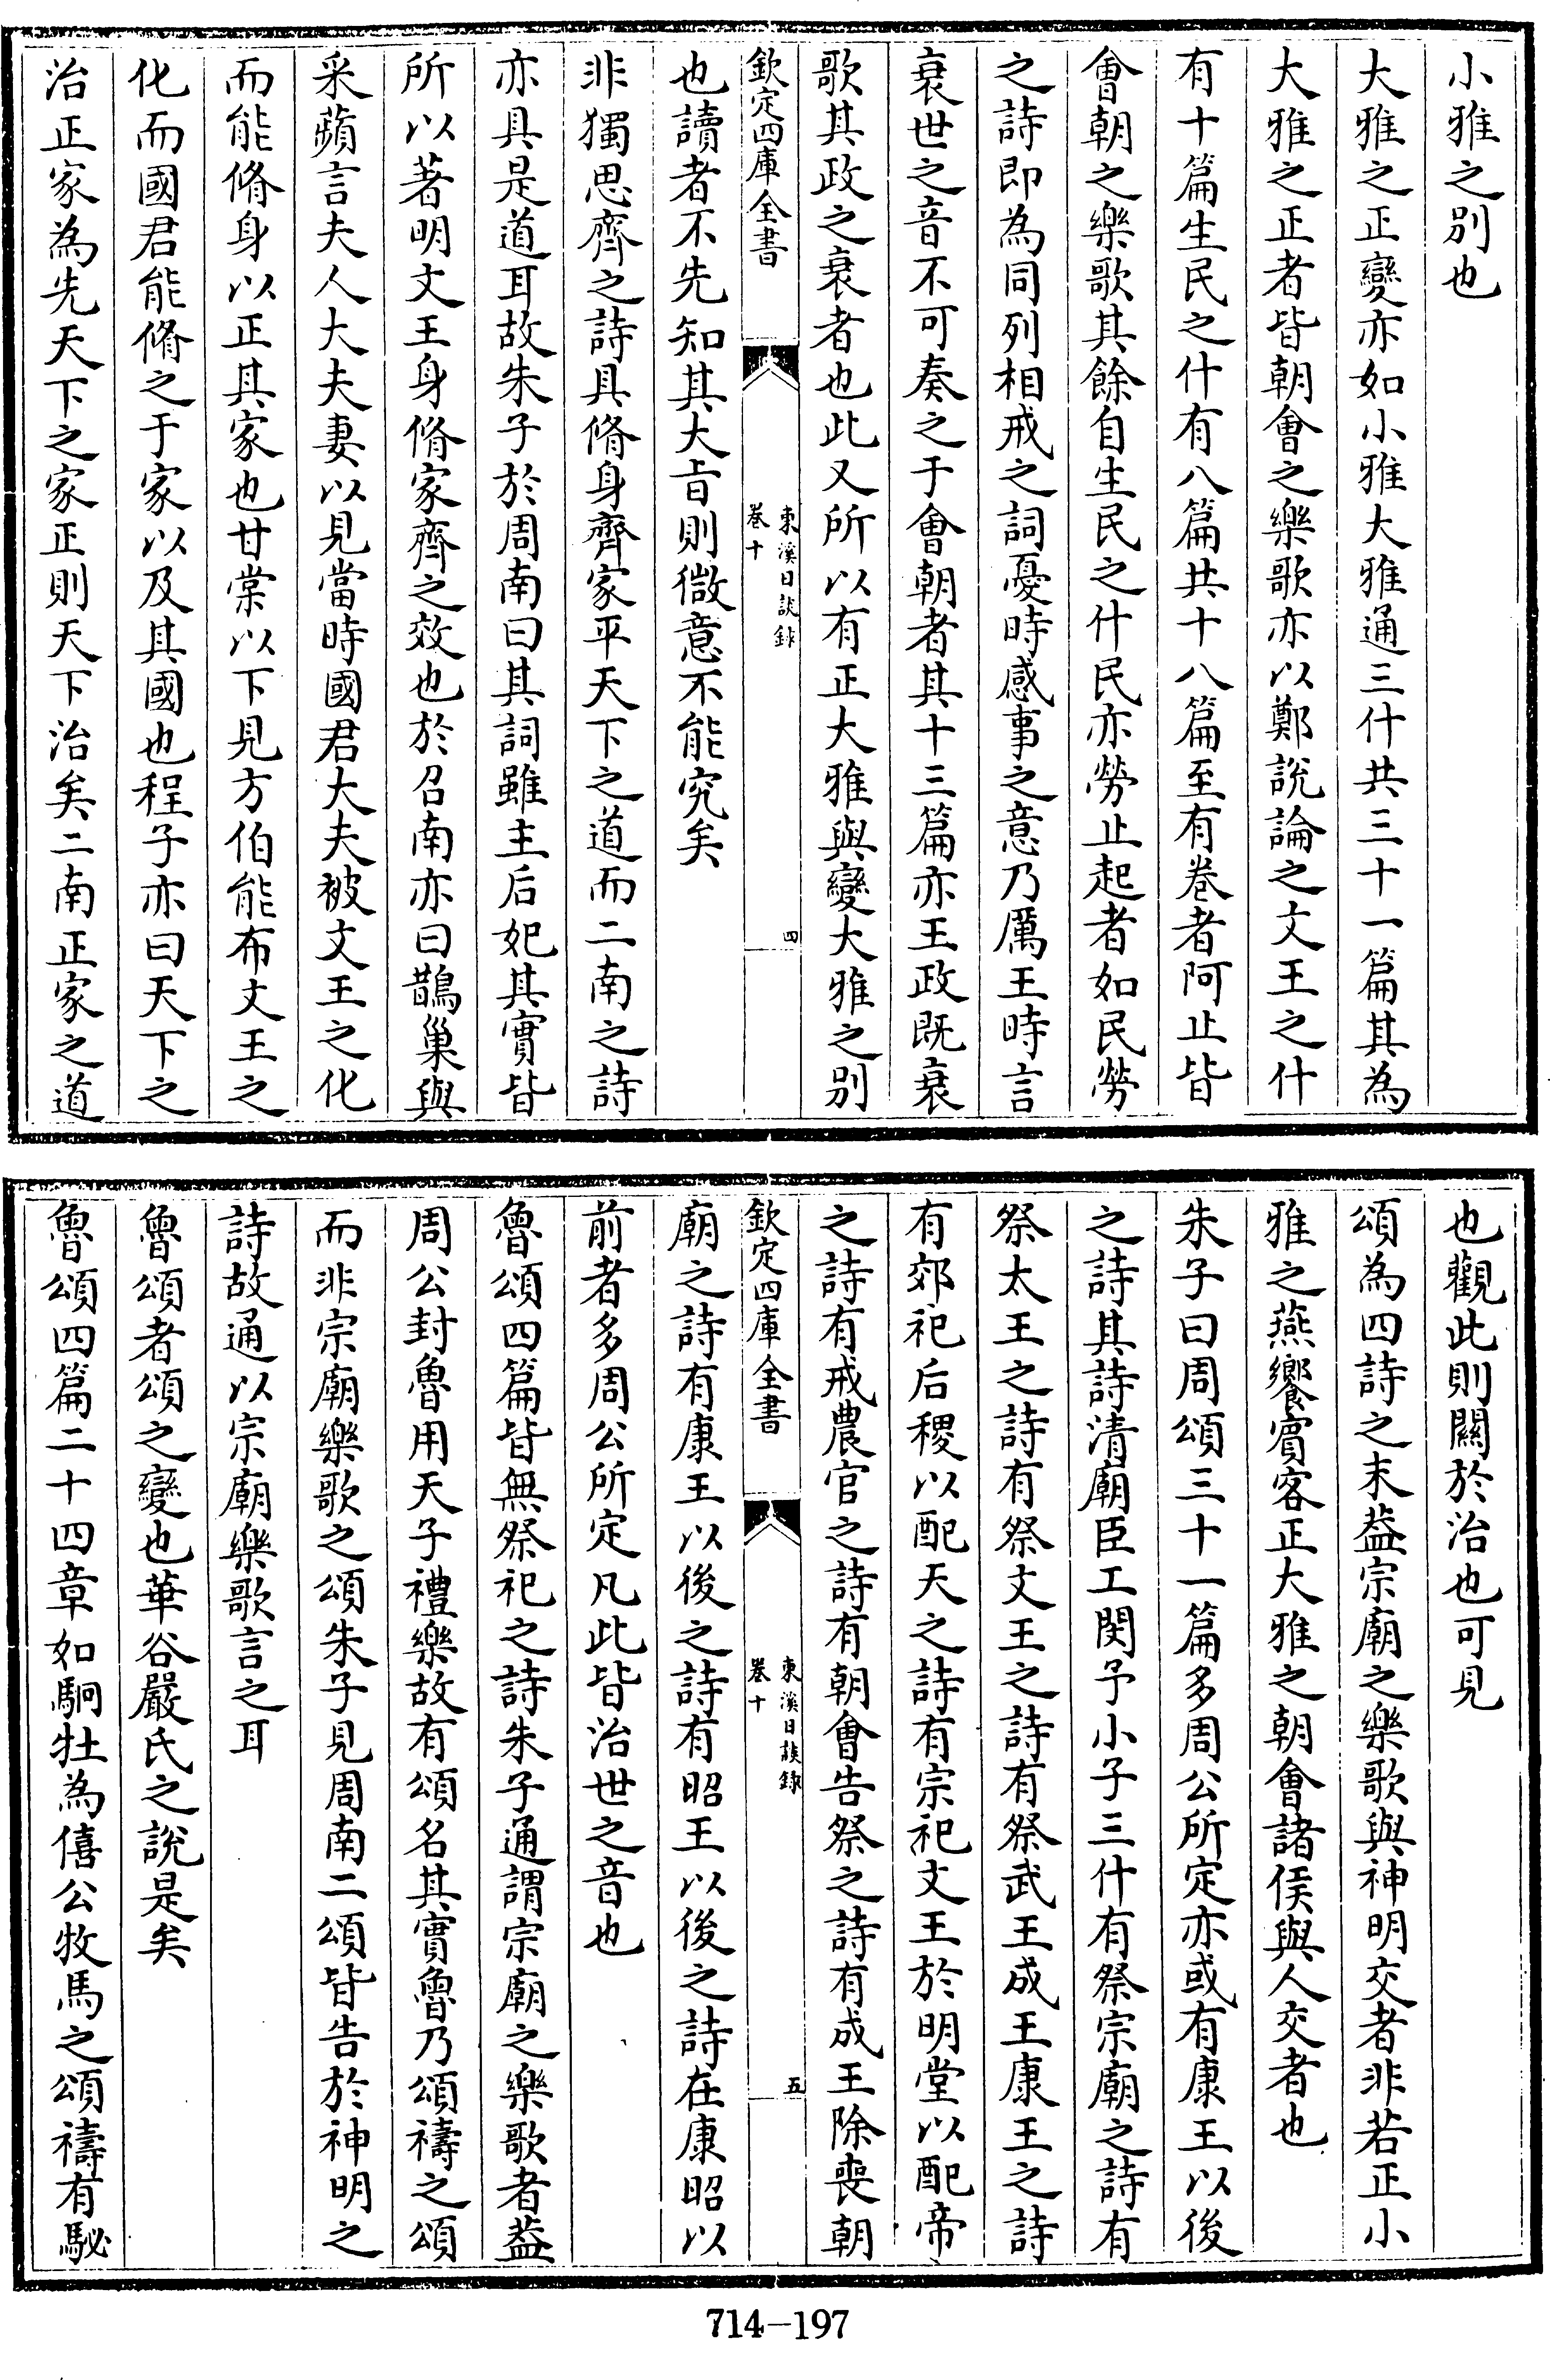 小雅之别也
大雅之正變亦如小雅大雅通三什共三十一篇其為
大雅之正者皆朝會之樂歌亦以鄭說論之文王之什
有十篇生民之什有八篇共十八篇至有卷者阿止皆
會朝之樂歌其餘自生民之什民亦勞止起者如民勞
之詩即為同列相戒之詞憂時感事之意乃厲王時言
衰世之音不可奏之于會朝者其十三篇亦王政既衰
歌其政之衰者也此又所以有正大雅與變大雅之别
欽定四庫全書
東溪日談錄
卷十
四
也讀者不先知其大旨則微意不能究矣
非獨思齊之詩具脩身齊家平天下之道而二南之詩
亦具是道耳故朱子於周南曰其詞雖主后妃其實皆
所以著明文王身脩家齊之效也於召南亦曰鵲巢與
采蘋言夫人大夫妻以見當時國君大夫被文王之化
而能脩身以正其家也甘棠以下見方伯能布文王之
化而國君能脩之于家以及其國也程子亦曰天下之
治正家為先天下之家正則天下治矣二南正家之道
也觀此則關於治也可見
頌為四詩之末葢宗廟之樂歌與神明交者非若正小
雅之燕饗賓客正大雅之朝會諸侯與人交者也
朱子曰周頌三十一篇多周公所定亦或有康王以後
之詩其詩清廟臣工閔予小子三什有祭宗廟之詩有
祭太王之詩有祭文王之詩有祭武王成王康王之詩
有郊祀后稷以配天之詩有宗祀文王於明堂以配帝
之詩有戒農官之詩有朝會告祭之詩有成王除喪朝
欽定四庫全書
東溪日談錄
卷十
五
廟之詩有康王以後之詩有昭王以後之詩在康昭以
前者多周公所定凡此皆治世之音也
魯頌四篇皆無祭祀之詩朱子通謂宗廟之樂歌者葢
周公封魯用天子禮樂故有頌名其實魯乃頌禱之頌
而非宗廟樂歌之頌朱子見周南二頌皆告於神明之
詩故通以宗廟樂歌言之耳
魯頌者頌之變也華谷嚴氏之說是矣
魯頌四篇二十四章如駉牡為僖公牧馬之頌禱有駜
714-197